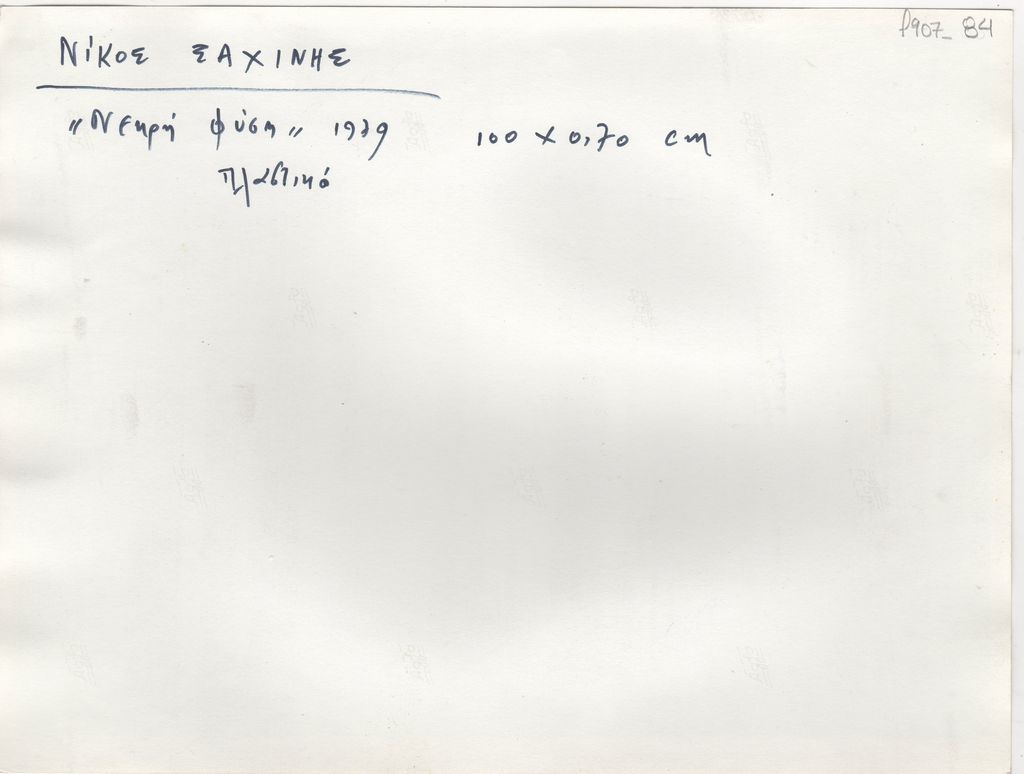 P907_84
ΝίΚΟΣ ΣΑΧΙΝΗΣ
"Νεκρή φύση" 1979 100 x 0,70 cm
πλαστικό